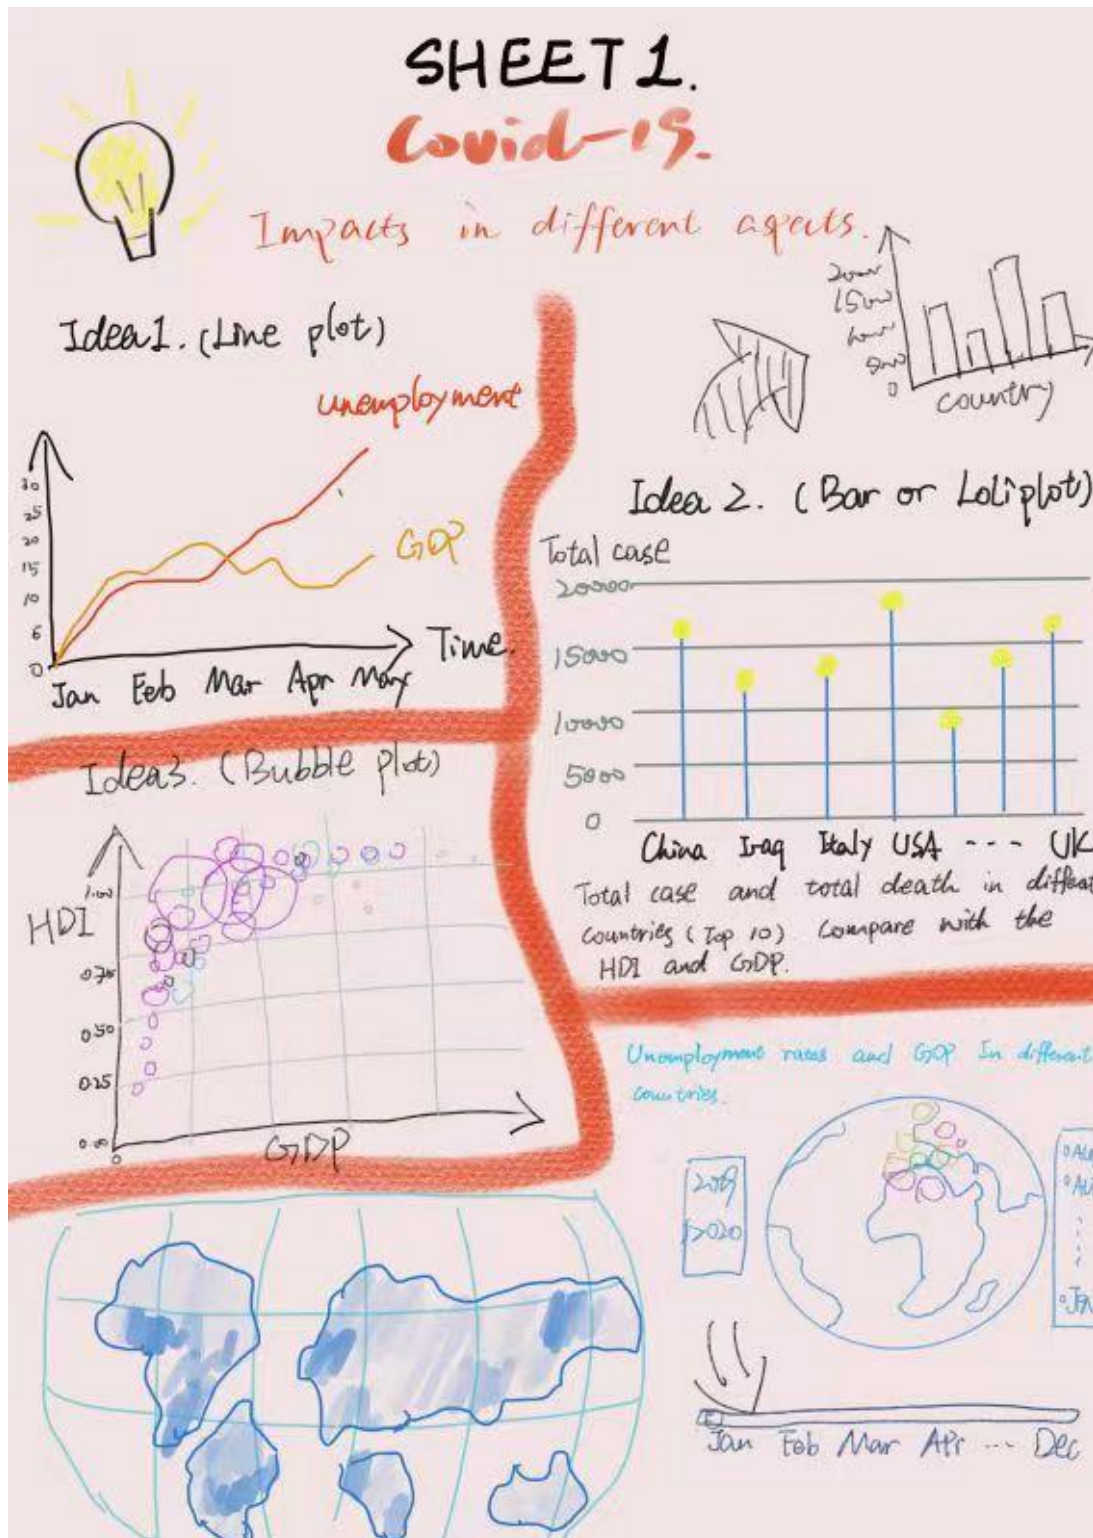 SHEET 1.
Covid-19.
Impacts in different aspects.
Idea1. (Line plot)
unemployment
GDP
30
25
20
15
10
6
0
Time.
Jan Feb Mar Apr May
15000
0
country
Idea 2. (Bar or Loliplot)
Total case
20000
15000
10000
5000
0
China Iraq Italy USA ---- UK
Total case and total death in different
countries (Top 10) Compare with the
HDI and GDP.
Idea3. (Bubble plot)
HDI
1.00
0.75
0.50
0.25
0.00
0
GDP
Unemployment rates and GDP In different
countries.
2019
2020
Jan Feb Mar Apr ... Dec